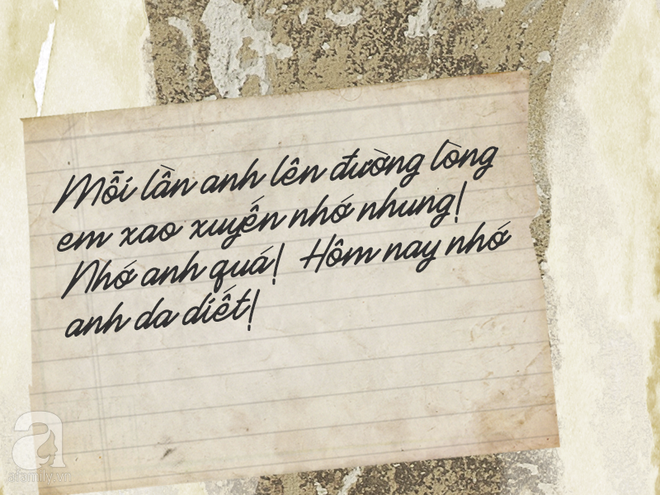 Mỗi lần anh lên đường lòng
em xao xuyến nhớ nhung!
Nhớ anh quá! Hôm nay nhớ
anh da diết!
a